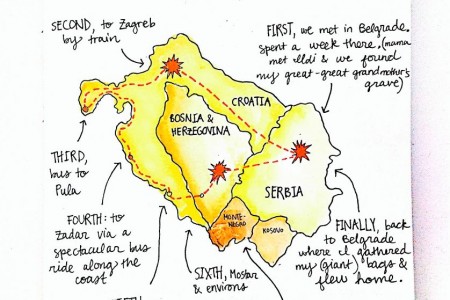 SECOND, to Zagreb
by train
FIRST, we met in Belgrade.
spent a week there. (mama
met Ildi & we found
my great-great grandmother's
grave)
CROATIA
BOSNIA &
HERZEGOVINA
THIRD,
bus to
Pula
SERBIA
MONTE-
NEGRO
KOSOVO
FOURTH: to
Zadar via a
spectacular bus
ride along the
coast
FINALLY, back
to Belgrade
where I gathered
my (giant) bags &
flew home.
SIXTH, Mostar
& environs